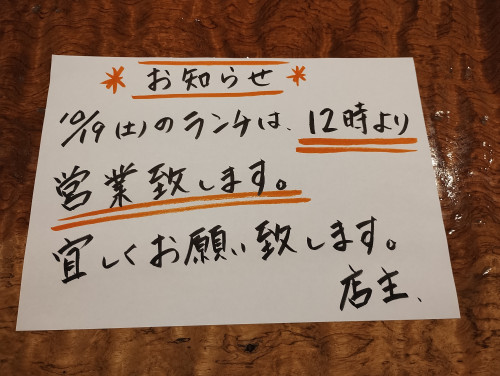 * お知らせ *
10/19(土)のランチは、12時より
営業致します。
宜しくお願い致します。
店主、